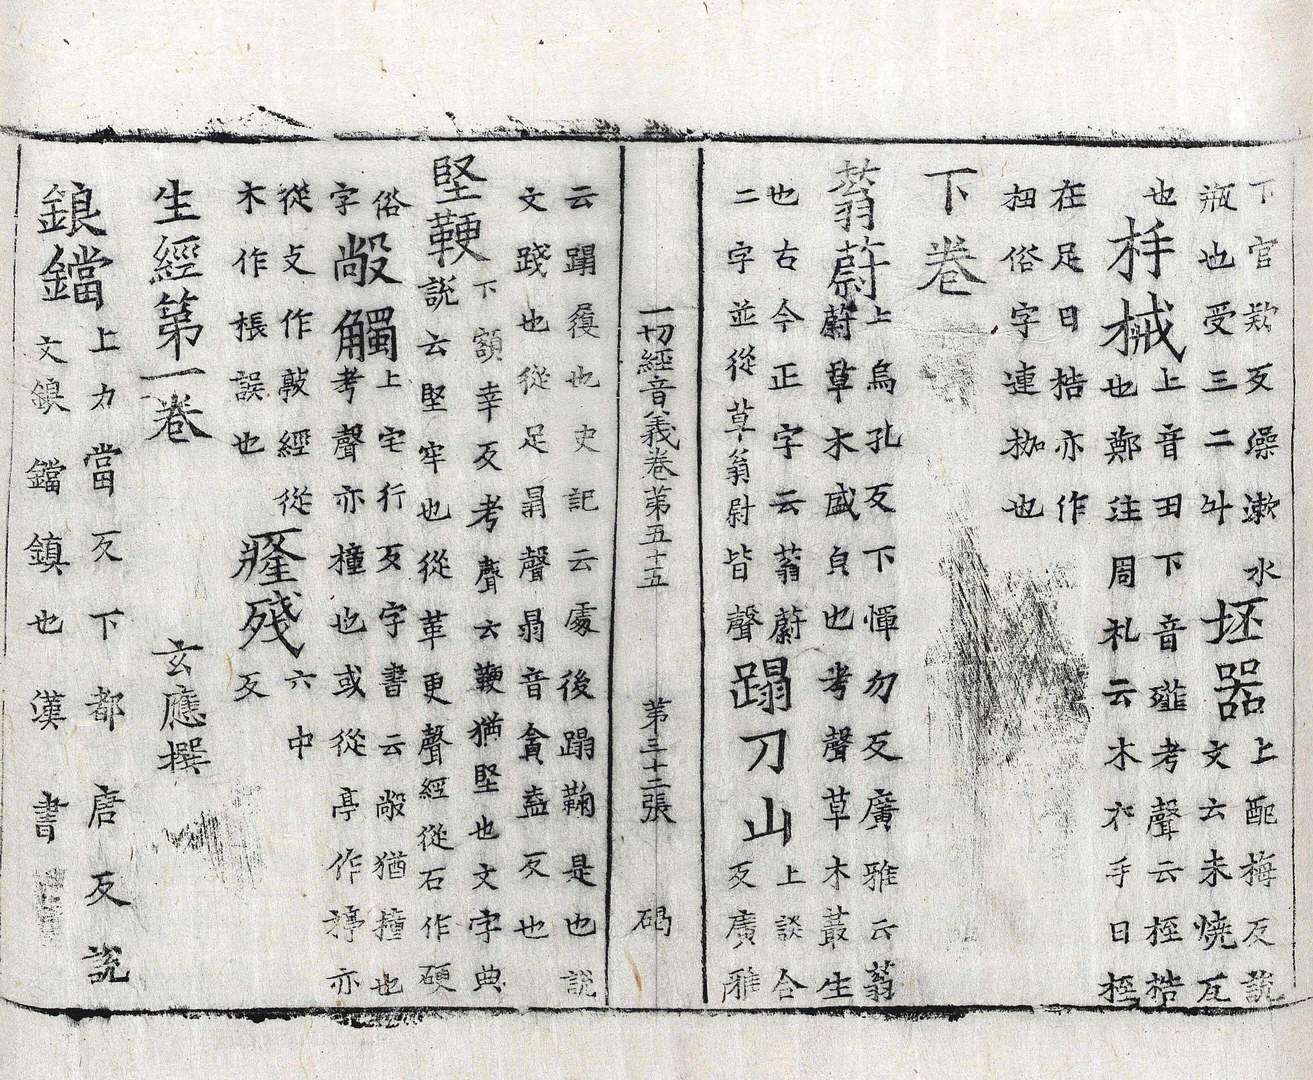 下官欻反澡漱水
瓶也受三二斗
坯器
上配梅反說
文云未燒瓦
也
杽械
上音田下音薤考聲云桎梏
也鄭注周礼云木手日桎
在足日梏亦作
扭俗字連枷也
下卷
蓊蔚
上烏孔反下惲勿反廣雅云蓊
蔚草木盛貞也考聲草木叢生
也古今正字云蓊蔚
二字並從草翁尉皆聲
蹋刀山
上談合
反廣雅
一切經音義卷第五十五 第三十二張 碣
云蹋履也史記云處後蹋鞠是也說
文踐也從足𦐇聲𦐇音貪盍反也
堅鞕
下額幸反考聲云鞕猶堅也文字典
說云堅牢也從革更聲經從石作硬
俗
字
敞觸
上宅行反字書云敞猶撞也
考聲亦撞也或從亭作揨亦
從攴作敲經從
木作棖誤也
殘
六中
反
生經第一卷 玄應撰
鋃鐺
上力當反下都唐反說
文鋃鐺鎮也漢書